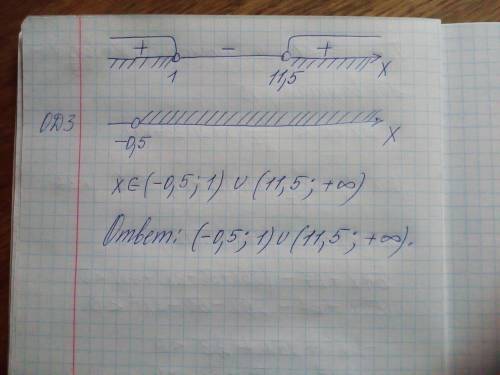 + − +
1 11,5 X
ОДЗ
-0,5 X
X∈(-0,5; 1) ∪ (11,5; +∞)
Ответ: (-0,5; 1)∪(11,5; +∞).